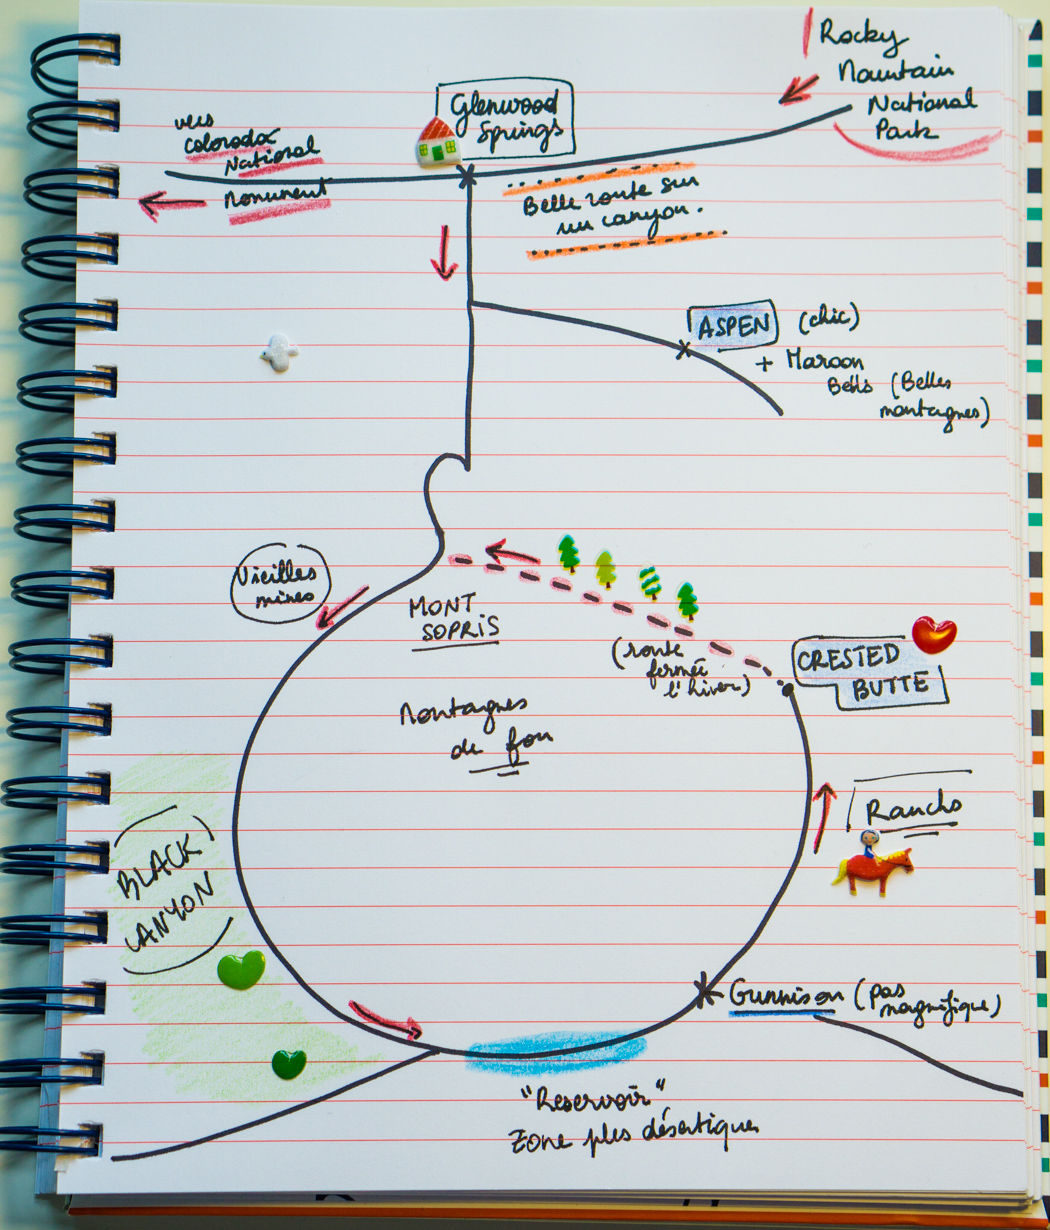 Rocky
Mountain
National
Park
Glenwood
Springs
vers
Colorado
National
Monument
Belle route sur
un canyon.
ASPEN (chic)
+ Maroon
Bells (Belles
montagnes)
Vieilles
mines
MONT
SOPRIS
(route
fermée
l'hiver)
CRESTED
BUTTE
Montagnes
de fou
Ranchs
BLACK
CANYON
Gunnison (pas
magnifique)
"Reservoir"
Zone plus désertique